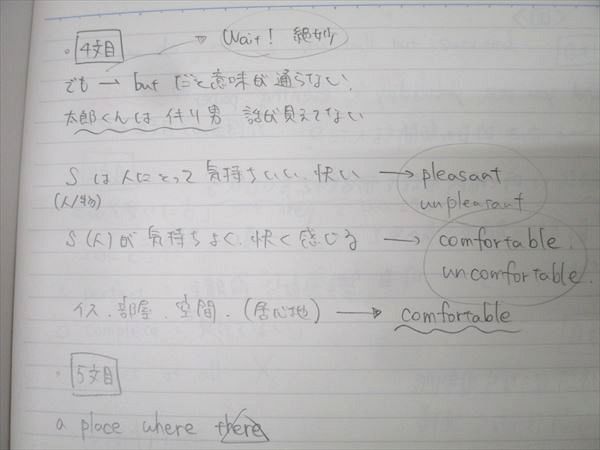 。4文目 → Wait! 絶妙
でも → but だと意味が通らない、
太郎くんは イキリ男 誰が見えてない
S は人にとって 気持ちいい、快い → pleasant
(人/物) unpleasant
S (人) が 気持ちよく、快く感じる → comfortable.
uncomfortable.
イス、部屋、空間、(居心地) → comfortable
。5文目
a place where there